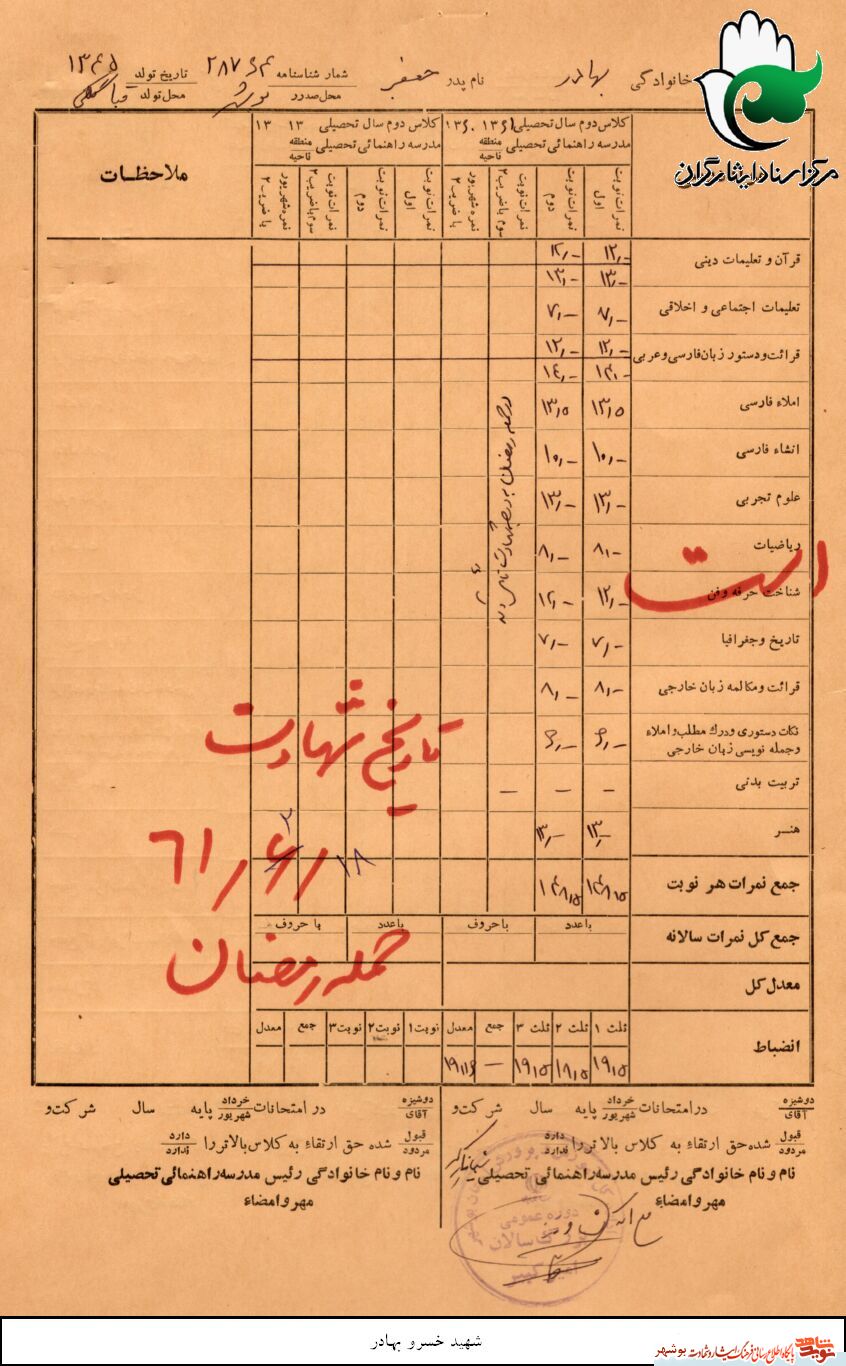 خانوادگی بهادر نام پدر جعفر شمار شناسنامه ۲۸۷۶۴ تاریخ تولد ۱۳۴۵
محل صدور بوشهر محل تولد
مرکز اسناد ایثارگران
کلاس دوم سال تحصیلی ۱۳۶۱ ۱۳۶۰
مدرسه راهنمائی تحصیلی منطقه ناحیه
کلاس دوم سال تحصیلی ۱۳ ۱۳
مدرسه راهنمائی تحصیلی منطقه ناحیه
ملاحظات
نمرات نوبت اول
نمرات نوبت دوم
نمرات نوبت سوم با ضریب ۲
نمره شهریور با ضریب ۲
نمرات نوبت اول
نمرات نوبت دوم
نمرات نوبت سوم با ضریب ۲
نمره شهریور با ضریب ۲
قرآن و تعلیمات دینی ۱۲٫- ۱۲٫-
۱۳٫- ۱۳٫-
تعلیمات اجتماعی و اخلاقی ۷٫- ۷٫-
قرائت و دستور زبان فارسی و عربی ۱۲٫- ۱۲٫-
۱۴٫- ۱۴٫-
املاء فارسی ۱۳٫۵ ۱۳٫۵
انشاء فارسی ۱۰٫- ۱۰٫-
علوم تجربی ۱۳٫- ۱۳٫-
ریاضیات ۸٫- ۸٫-
شناخت حرفه وفن ۱۲٫- ۱۲٫-
تاریخ وجغرافیا ۷٫- ۷٫-
قرائت ومکالمه زبان خارجی ۸٫- ۸٫-
نکات دستوری ودرك مطلب واملاء
وجمله نویسی زبان خارجی ۶٫- ۶٫-
تربیت بدنی - - -
هنر ۱۳٫- ۱۳٫-
در حمله رمضان به درجه شهادت نائل
است
تاریخ شهادت
۶۱/۴/
۲
۱۸
حمله رمضان
جمع نمرات هر نوبت ۱۴۸٫۵ ۱۴۸٫۵
جمع کل نمرات سالانه باعدد باحروف باعدد با حروف
معدل کل
انضباط ثلث ۱ ثلث ۲ ثلث ۳ جمع معدل نوبت۱ نوبت۲ نوبت۳ جمع معدل
۱۹٫۵ ۱۸٫۵ ۱۹٫۵ —
دوشیزه آقای در امتحانات خرداد شهریور پایه سال شرکت و
قبول مردود شده حق ارتقاء به کلاس بالاتر را دارد ندارد
نام و نام خانوادگی رئیس مدرسه راهنمائی تحصیلی
مهر و امضاء
دوشیزه آقای در امتحانات خرداد شهریور پایه سال شرکت و
قبول مردود شده حق ارتقاء به کلاس بالاتر را دارد ندارد
نام و نام خانوادگی رئیس مدرسه راهنمائی تحصیلی
مهر و امضاء
دوره عمومی
سالان
امیر کبیر
شهید خسرو بهادر
نوید شاهد پایگاه اطلاع رسانی فرهنگ ایثار و شهادت بوشهر